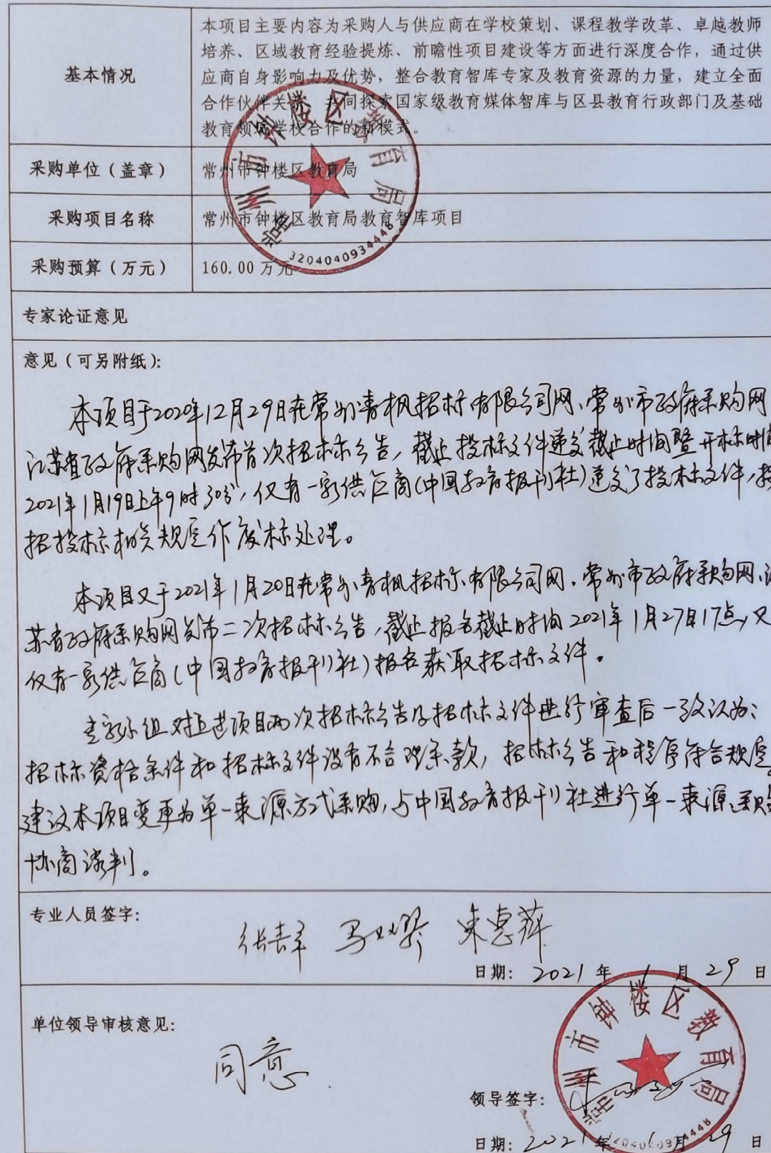 基本情况
本项目主要内容为采购人与供应商在学校策划、课程教学改革、卓越教师
培养、区域教育经验提炼、前瞻性项目建设等方面进行深度合作，通过供
应商自身影响力及优势，整合教育智库专家及教育资源的力量，建立全面
合作伙伴关系，共同探索国家级教育媒体智库与区县教育行政部门及基础
教育领域学校合作的新模式。
采购单位（盖章）
常州市钟楼区教育局
采购项目名称
常州市钟楼区教育局教育智库项目
采购预算（万元）
160.00万元
常州市钟楼区教育局
3204040934448
专家论证意见
意见（可另附纸）：
本项目于2020年12月29日在常州青枫招标有限公司网、常州市政府采购网
江苏省政府采购网发布首次招标公告，截止投标文件递交截止时间暨开标时间
2021年1月19日上午9时30分，仅有一家供应商(中国教育报刊社)递交了投标文件，按
招投标相关规定作废标处理。
本项目又于2021年1月20日在常州青枫招标有限公司网、常州市政府采购网、江
苏省政府采购网发布二次招标公告，截止报名截止时间2021年1月27日17点，又
仅有一家供应商(中国教育报刊社)报名获取招标文件。
专家小组对上述项目两次招标公告及招标文件进行审查后一致认为：
招标资格条件和招标文件没有不合理条款，招标公告和程序符合规定。
建议本项目变更为单一来源方式采购，与中国教育报刊社进行单一来源采购
协商谈判。
专业人员签字：
朱惠萍
日期：2021年1月29日
单位领导审核意见：
同意
领导签字：
常州市钟楼区教育局
3204040934448
日期：2021年1月29日